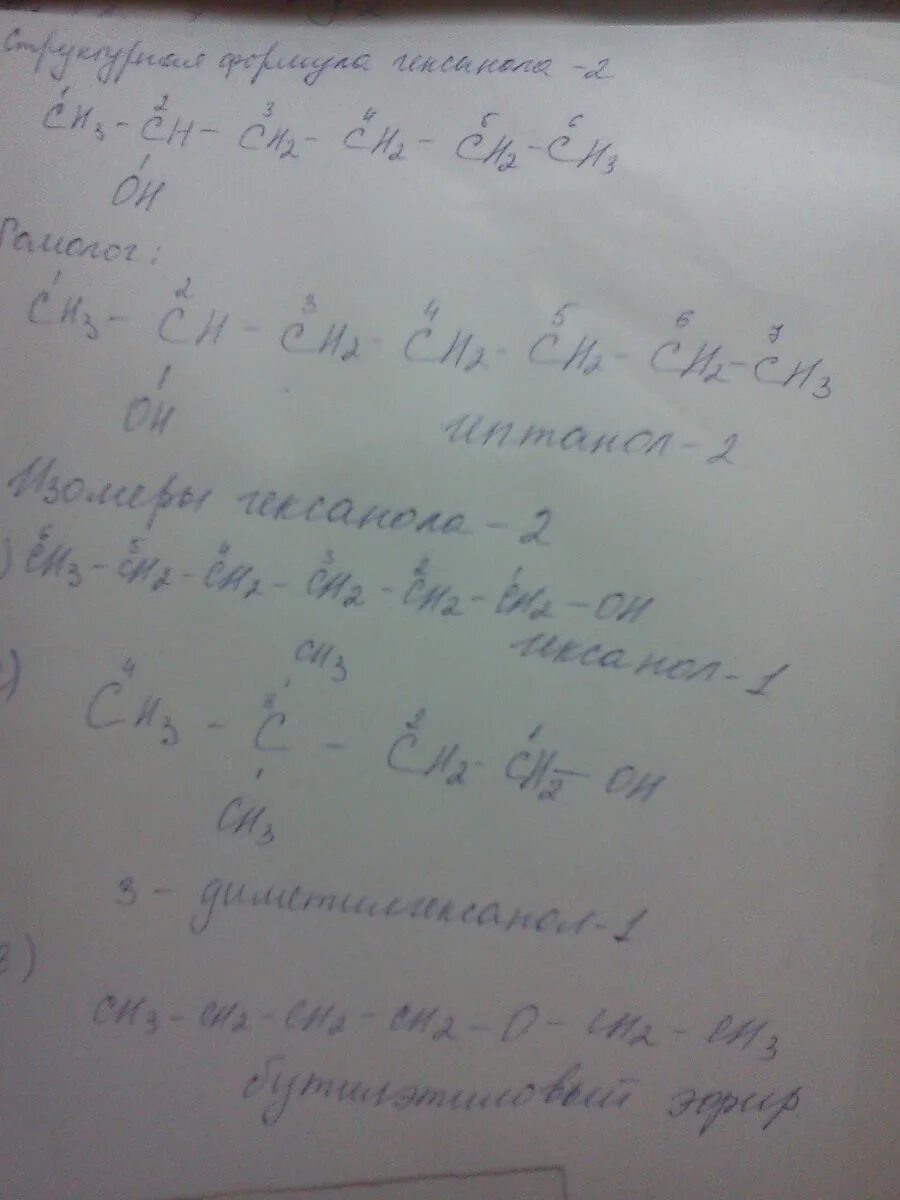 Структурная формула гексанола -2
1 2 3 4 5 6
CH3 - CH - CH2 - CH2 - CH2 - CH3
OH
Гомолог:
1 2 3 4 5 6 7
CH3 - CH - CH2 - CH2 - CH2 - CH2 - CH3
OH
гептанол - 2
Изомеры гексанола - 2
6 5 4 3 2 1
) CH3 - CH2 - CH2 - CH2 - CH2 - CH2 - OH
гексанол - 1
) CH3
4 3 2 1
CH3 - C - CH2 - CH2 - OH
CH3
3 - диметилгексанол - 1
3)
CH3 - CH2 - CH2 - CH2 - O - CH2 - CH3
бутилэтиловый эфир